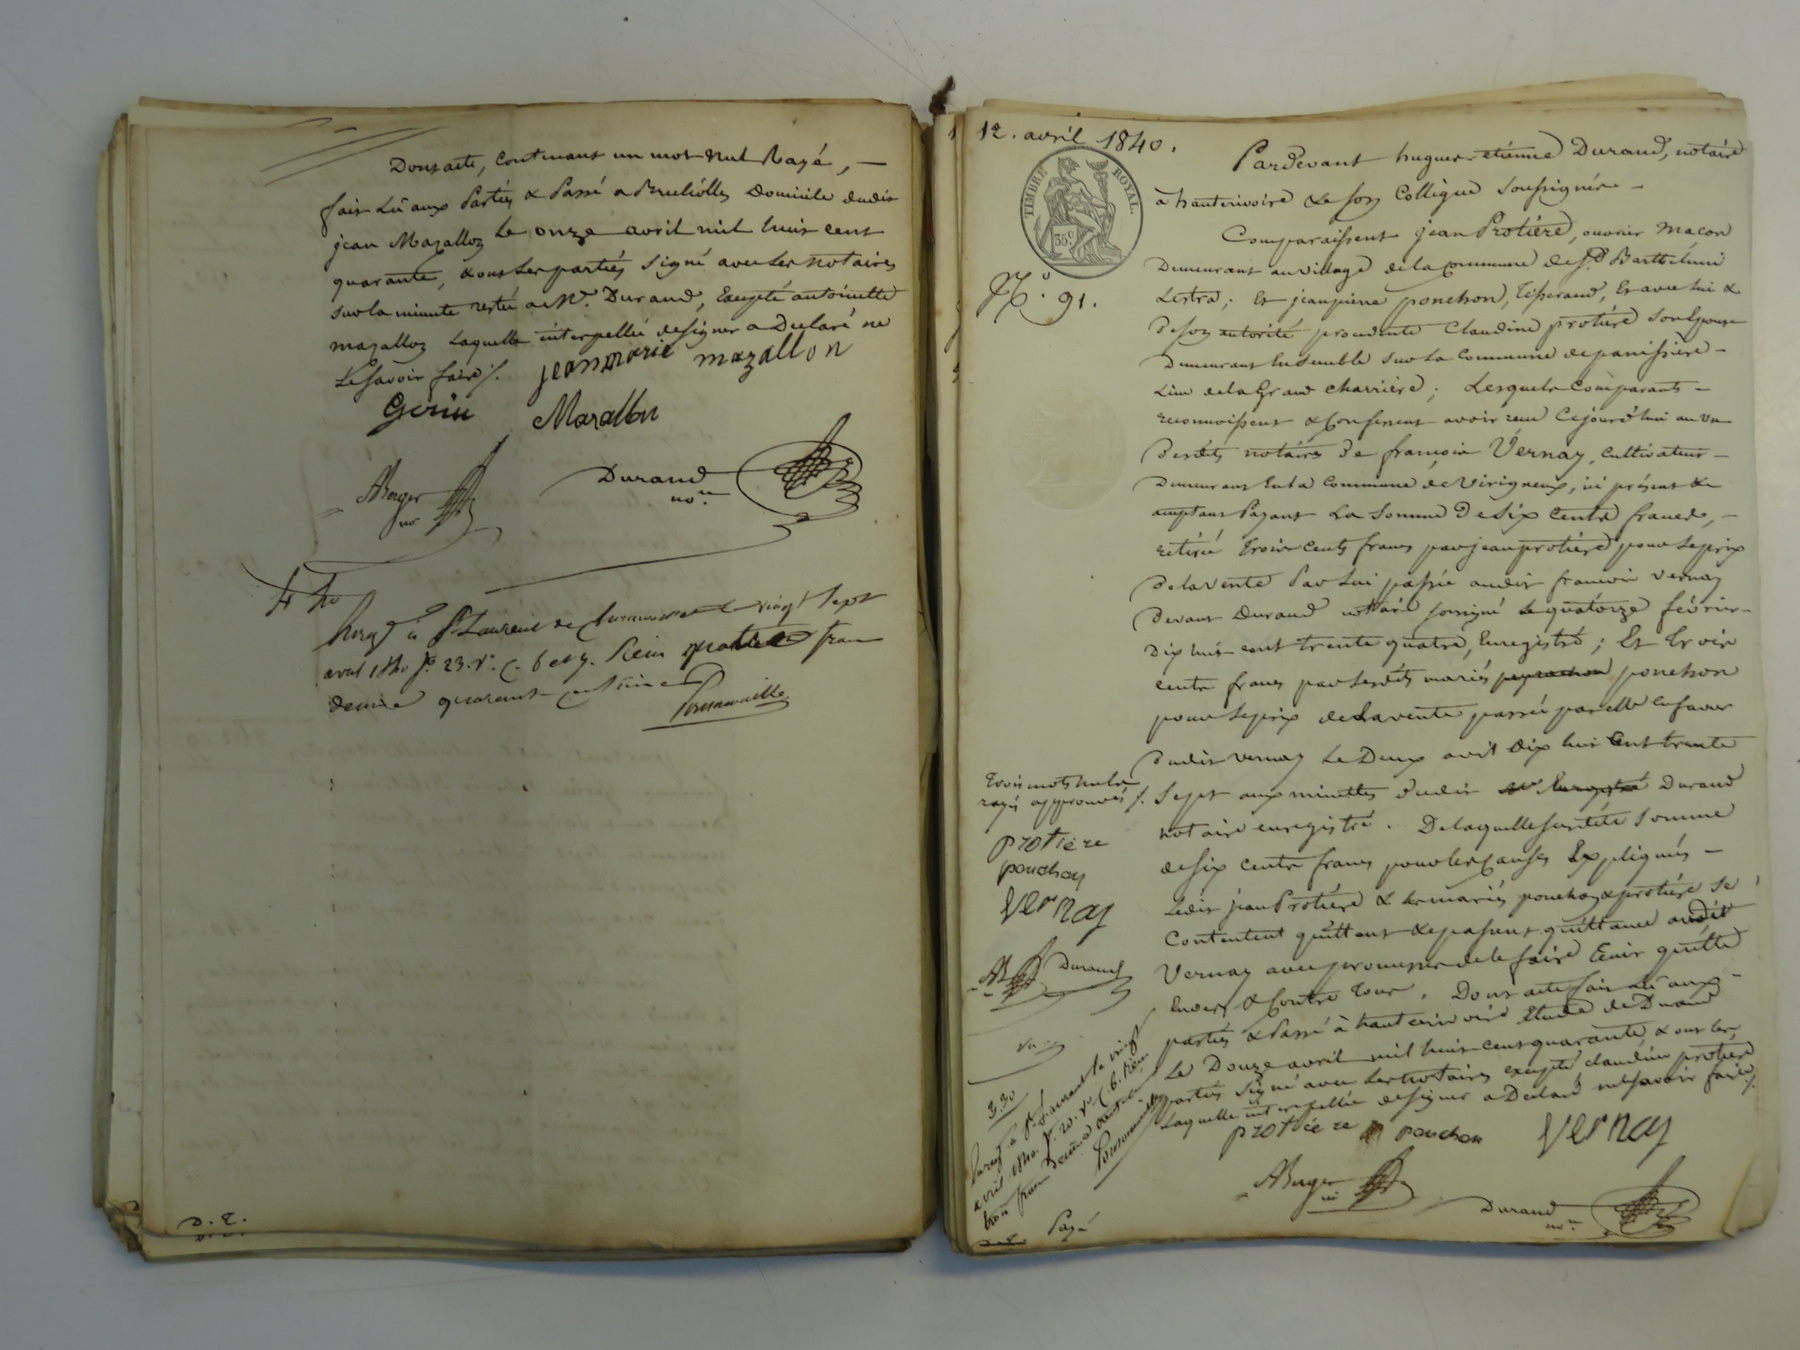 Dont acte, contenant un mot nul Rayé, —
fait Lu aux Parties & Passé a Domicile dudit
jean Mazalloz Le onze avril mil huit cent
quarante, & ont Les parties Signé avec Les notaires
Sur la minute restée a Mr. Durand, Excepté antoinette
mazalloz Laquelle interpellée de signer a Declaré ne
Le savoir faire /.
jeanmarie mazallon
Gerin Mazallon
ABerger no
Durand nore
St Laurent de le vingt sept
avril 1840 fo. 23. vo. c. 6 et 7. Reçu quatre francs
decime quarante centimes
D. E.
12. avril 1840.
TIMBRE ROYAL.
35 c
No. 91.
Pardevant hugues-etienne Durand, notaire
à hauterivoire & Son Collègue Soussignés —
Comparaissent jean Protière, ouvrier Macon
Demeurant au village de la Commune de St Barthélemi
Lestra; Et jean pierre ponchon, Tisserand, Et avec lui &
de son autorité procedante Claudine protière Son Epouse
Demeurant Ensemble sur La Commune de panissière —
Lieu de la Grand charrière; Lesquels Comparants —
reconnoissent & Confessent avoir reçu Cejourd'hui au vu
desdits notaires De françois Vernay, cultivateur —
Demeurant En la Commune de Virigneux, ici présent &
acceptant Payant La Somme De Six Cents francs, —
retirée Trois Cents francs par jean protière pour Le prix
De la vente Par Lui passée audit francois vernay
Devant Durand notaire soussigné Le quatorze février —
Dix huit cent trente quatre, Enregistré; Et Trois
cents francs par Lesdits mariés ponchon
pour Le prix de la vente passée par elle En faveur
Dudit vernay Le Deux avril Dix huit Cent trente
Sept aux minuttes Dudit Mr Enregistré Durand
notaire enregistré. De laquelle susdite Somme
de six cents francs pour les causes Expliqués —
Ledit jean Protière & Les mariés ponchon & protière Se
Contentent quittent & passent quittance audit
Vernay avec promesse de le faire Tenir quitte
Envers & Contre Tous. Dont acte fait Lu aux —
parties & Passé à hauterivoire Etude de Durand
Le Douze avril mil huit cent quarante & ont Les
parties Signé avec Les notaires excepté claudine protière
Laquelle interpellée de signer a Declaré ne savoir faire /.
protière ponchon Vernay
ABerger no
Durand nore
Trois mots nuls
rayés approuvés /.
protière
ponchon
Vernay
AB Durand
3.30
à St Laurent le vingt
avril 1840. fo. 20. vo. c. 6. Reçu
trois francs Decime trente cent
D. E. Payé